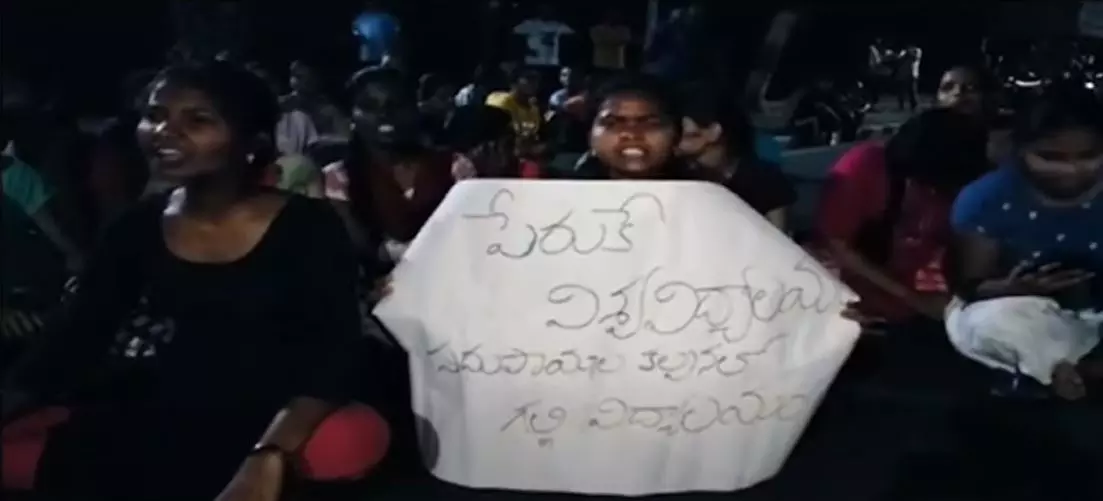 పేరుకే
విశ్వవిద్యాలయ
సదుపాయాల కల్పనలో
గల్లీ విద్యాలయం